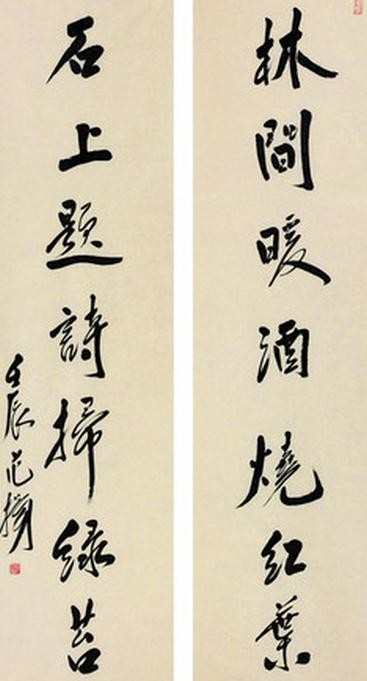 林間暖酒燒紅葉
石上題詩掃緑苔
壬辰范揚